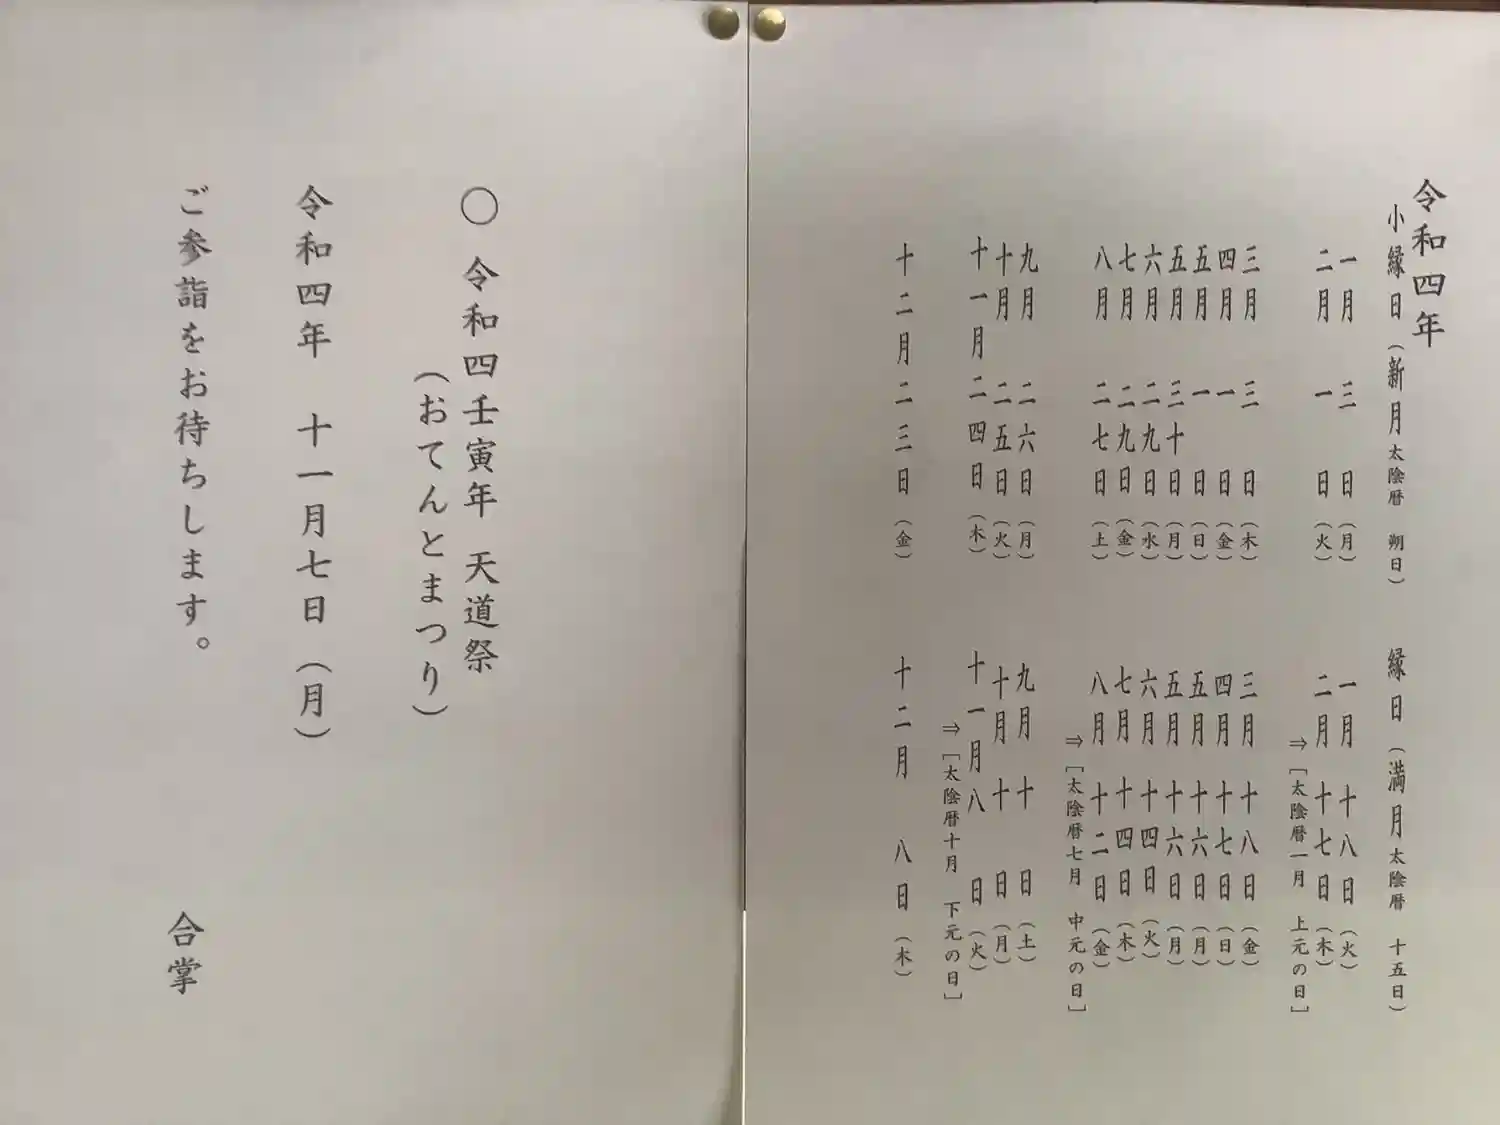 令和四年
小縁日（新月太陰暦 朔日） 縁日（満月太陰暦 十五日）
一月 三 日（月） 一月 十八日（火）
二月 一 日（火） 二月 十七日（木）
⇒［太陰暦一月 上元の日］
三月 三 日（木） 三月 十八日（金）
四月 一 日（金） 四月 十七日（日）
五月 一 日（日） 五月 十六日（月）
五月 三十日（月） 五月 十六日（月）
六月 二九日（水） 六月 十四日（火）
七月 二九日（金） 七月 十四日（木）
八月 二七日（土） 八月 十二日（金）
⇒［太陰暦七月 中元の日］
九月 二六日（月） 九月 十 日（土）
十月 二五日（火） 十月 十 日（月）
十一月 二四日（木） 十一月 八 日（火）
⇒［太陰暦十月 下元の日］
十二月 二三日（金） 十二月 八日（木）
〇 令和四壬寅年 天道祭
（おてんとまつり）
令和四年 十一月七日（月）
ご参詣をお待ちします。
合掌